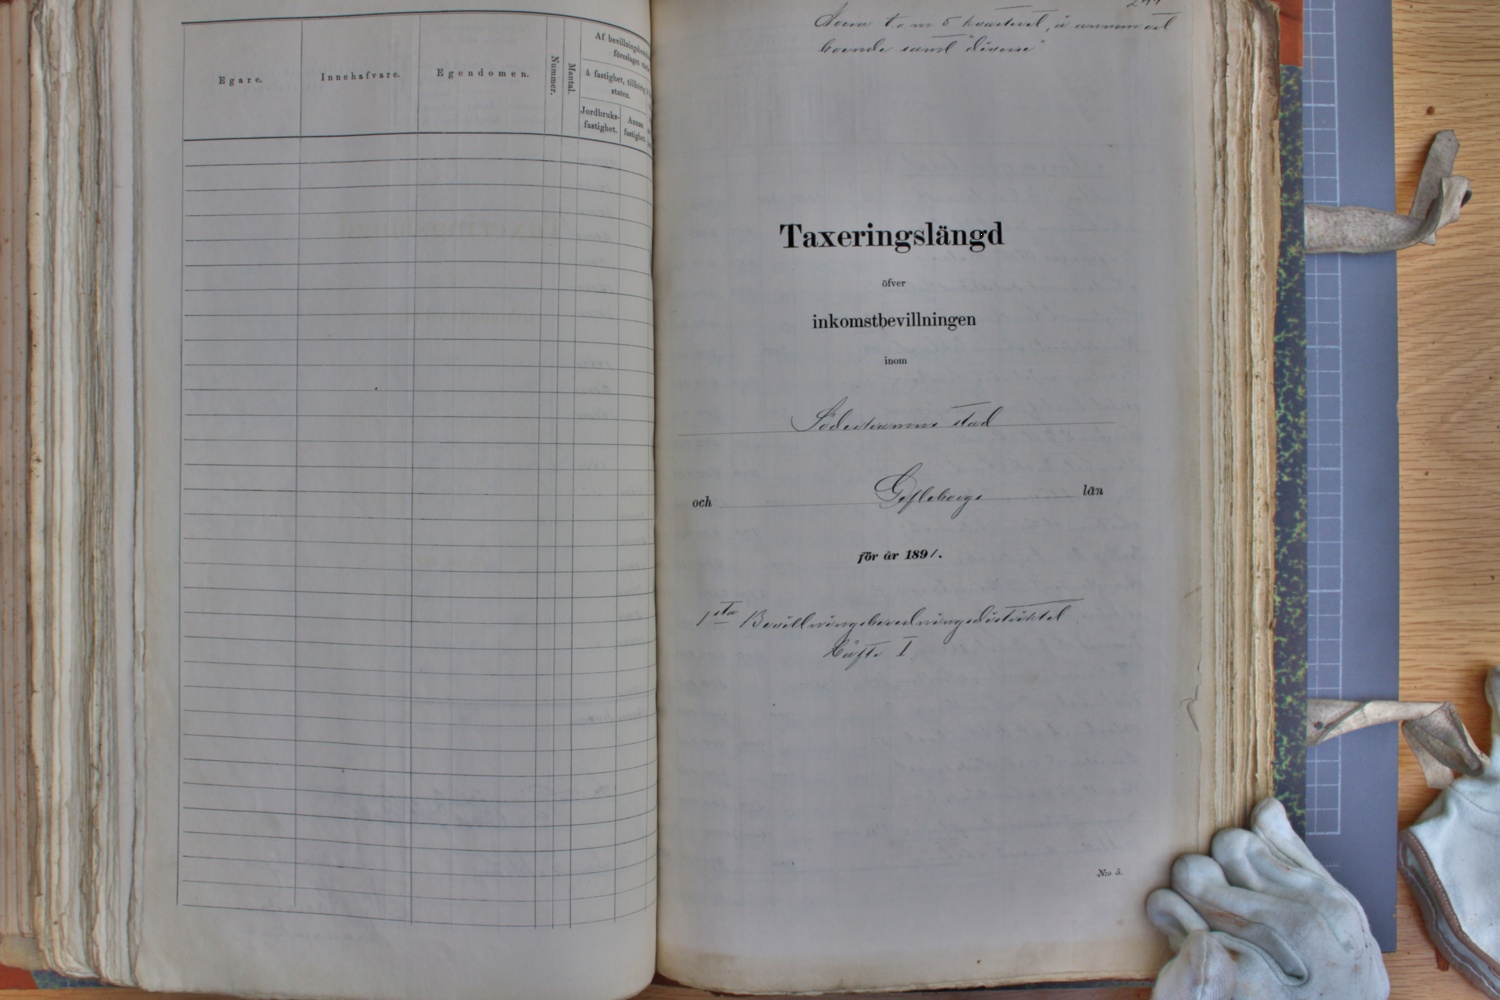 Egare.
Innehafvare.
Egendomen.
Nummer.
Mantal.
Af bevillningsbere
föreslaget
å fastighet, tillhörig
staten.
Jordbruks-
fastighet.
Annan
fastighet.
Norra t. o. m. 5 kvarteret, å annan ort
boende samt "diverse"
Taxeringslängd
öfver
inkomstbevillningen
inom
Söderhamns stad
och Gefleborgs län
för år 1891.
1sta Bevillningsberedningsdistriktet
Häfte I
N:o 5.